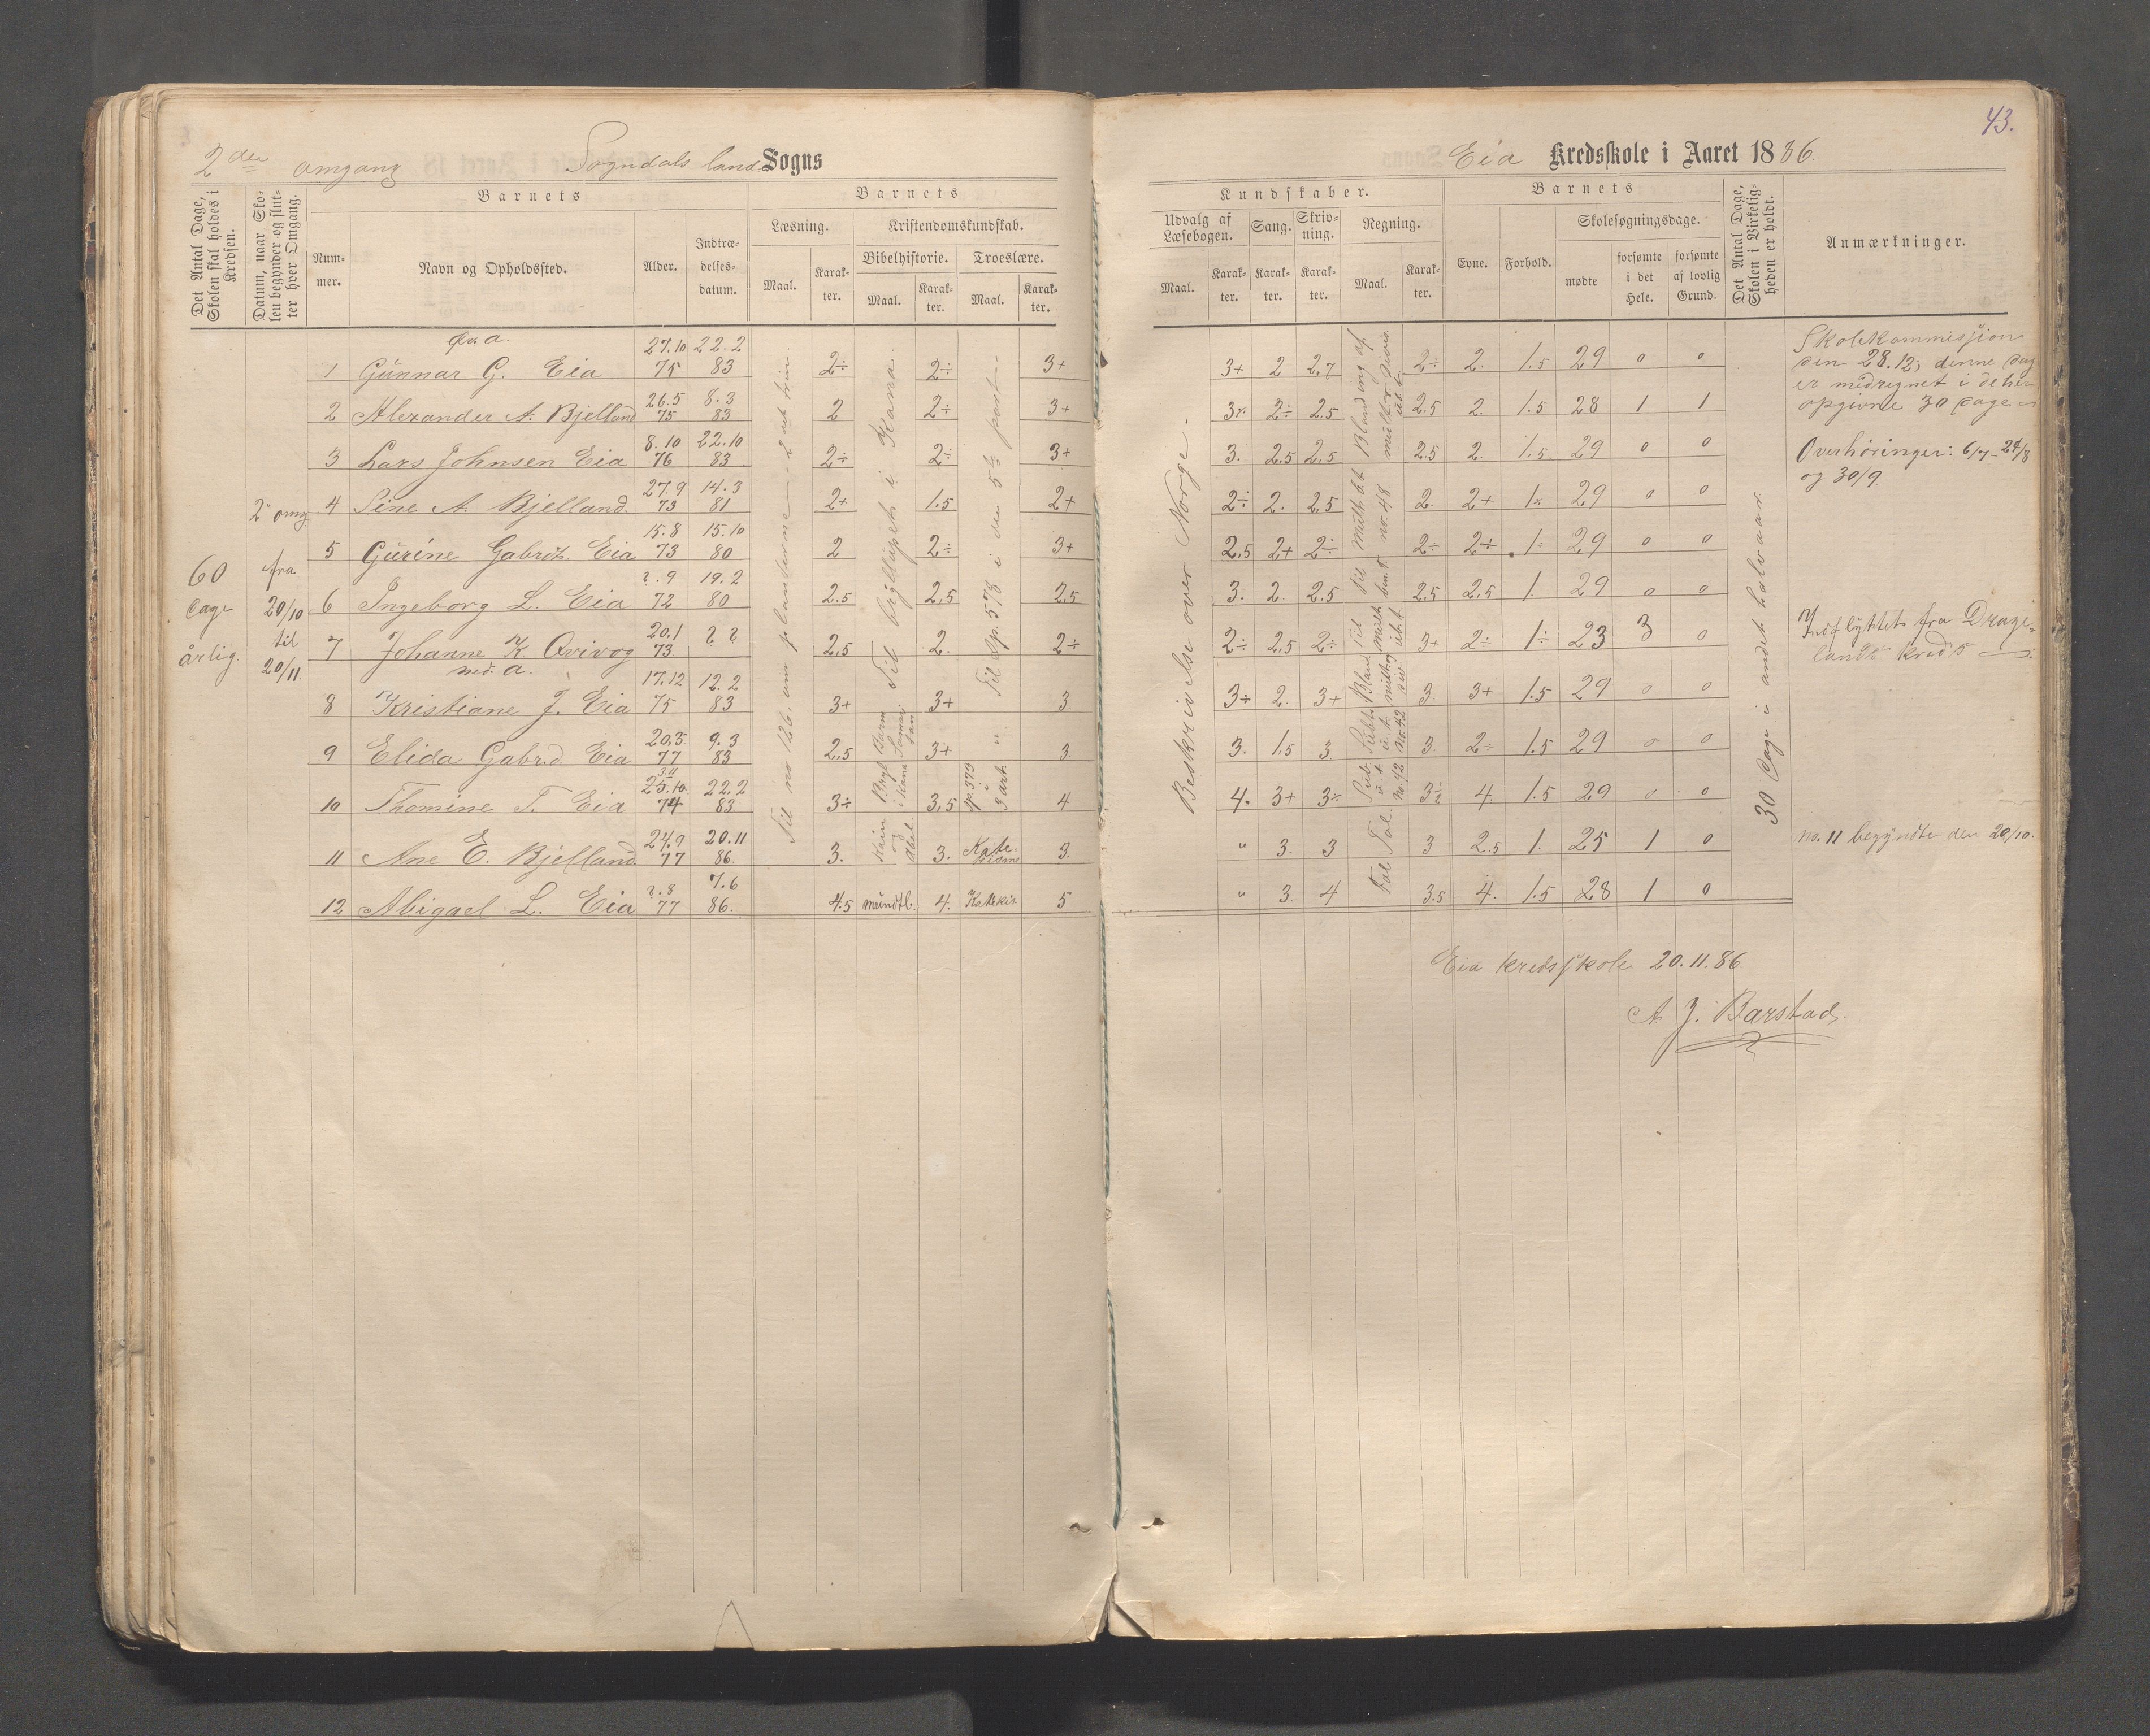 43.
2den omgang Sogndals land Sogns
Eia Kredsskole i Aaret 1886.
Det Antal Dage, Skolen skal holdes i Kredsen.
Datum, naar Skolen begynder og slutter hver Omgang.
Barnets
Nummer.
Navn og Opholdssted.
Alder.
Indtrædelses-datum.
Barnets
Læsning.
Maal.
Karakter.
Kristendomskundskab.
Bibelhistorie.
Maal.
Karakter.
Troeslære.
Maal.
Karakter.
Kundskaber.
Udvalg af Læsebogen.
Maal.
Karakter.
Sang.
Karakter.
Skrivning.
Karakter.
Regning.
Maal.
Karakter.
Barnets
Evne.
Forhold.
Skolesøgningsdage.
mødte
forsømte i det Hele.
forsømte af lovlig Grund.
Det Antal Dage, Skolen i Virkeligheden er holdt.
Anmærkninger.
60 dage årlig.
2den omg fra 20/10 til 20/11
1 Gunnar G. Eia 27.10 75 22.2 83 2÷ 2÷ 3+ 3+ 2 2,7 2÷ 2. 1.5 29 0 0
2 Alexander A. Bjelland 26.5 75 8.3 83 2 2÷ 3+ 3÷ 2÷ 2.5 2.5 2. 1.5 28 1 1
3 Lars Johnsen Eia 8.10 76 22.10 83 2÷ 2÷ 3+ 3. 2,5 2,5 2.5 2. 1.5 29 0 0
4 Sine A. Bjelland. 27.9 73 14.3 81 2+ 1.5 2+ 2÷ 2. 2.5 2. 2+ 1÷ 29 0 0
5 Gurine Gabrdt. Eia 15.8 73 15.10 80 2 2÷ 3+ 2,5 2+ 2÷ 2÷ 2÷ 1÷ 29 0 0
6 Ingeborg L. Eia ?.9 72 19.2 80 2.5 2,5 2,5 3. 2. 2.5 2.5 2,5 1. 29 0 0
7 Johanne K. Qvivog 20.1 73 ? ? 2,5 2. 2÷ 2÷ 2,5 2÷ 3+ 2÷ 1÷ 23 3 0
ned. a.
8 Kristiane J. Eia 17.12 75 12.2 83 3+ 3+ 3. 3÷ 2. 3+ 3. 3+ 1.5 29 0 0
9 Elida Gabrd. Eia 20.3 77 9.3 83 2,5 3+ 3. 3. 1.5 3. 3. 2÷ 1.5 29 0 0
10 Thomine T. Eia 74 22.2 83 3÷ 3,5 4 4. 3+ 3÷ 4. 1.5 29 0 0
11 Ane E. Bjelland 24.9 77 20.11 86. 3. Kain og Abel. 3. Katekisme 3. " 3. 3 Tal. 3 2.5 1. 25 1 0
12 Abigael L. Eia ?.8 77 7.6 86. 4.5 mundtl. 4. Katekis. 5 " 3. 4 Tal 3.5 4. 1.5 28 1 0
Beskrivelse over Norge.
30 dage i andet halvaar.
Skolekommission
den 28.12; denne dag
er medregnet i de her
opgivne 30 dage.
Overhøringer: 6/7 - 24/8
og 30/9.
7/ Indflyttet fra Drage-
lands kreds
no. 11 begyndte den 20/10.
Eia kredsskole 20.11.86.
A. J. Barstad.